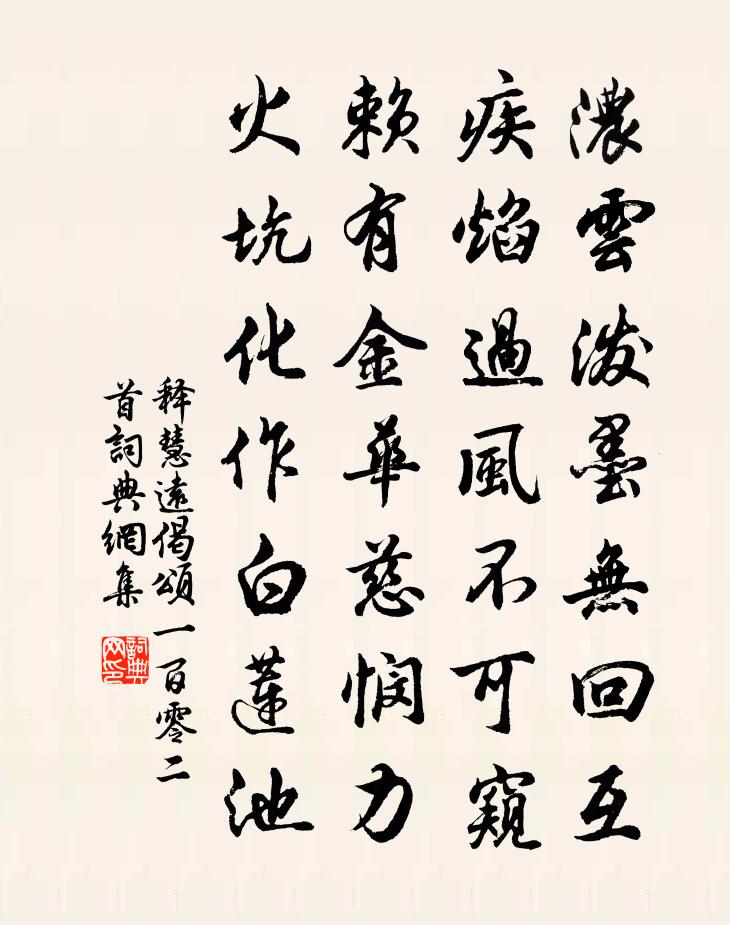 濃雲潑墨無回互
疾焰過風不可窺
賴有金華慈悯力
火坑化作白蓮池
释慧遠偈頌一百零二
首詞典網集
詞典
网印